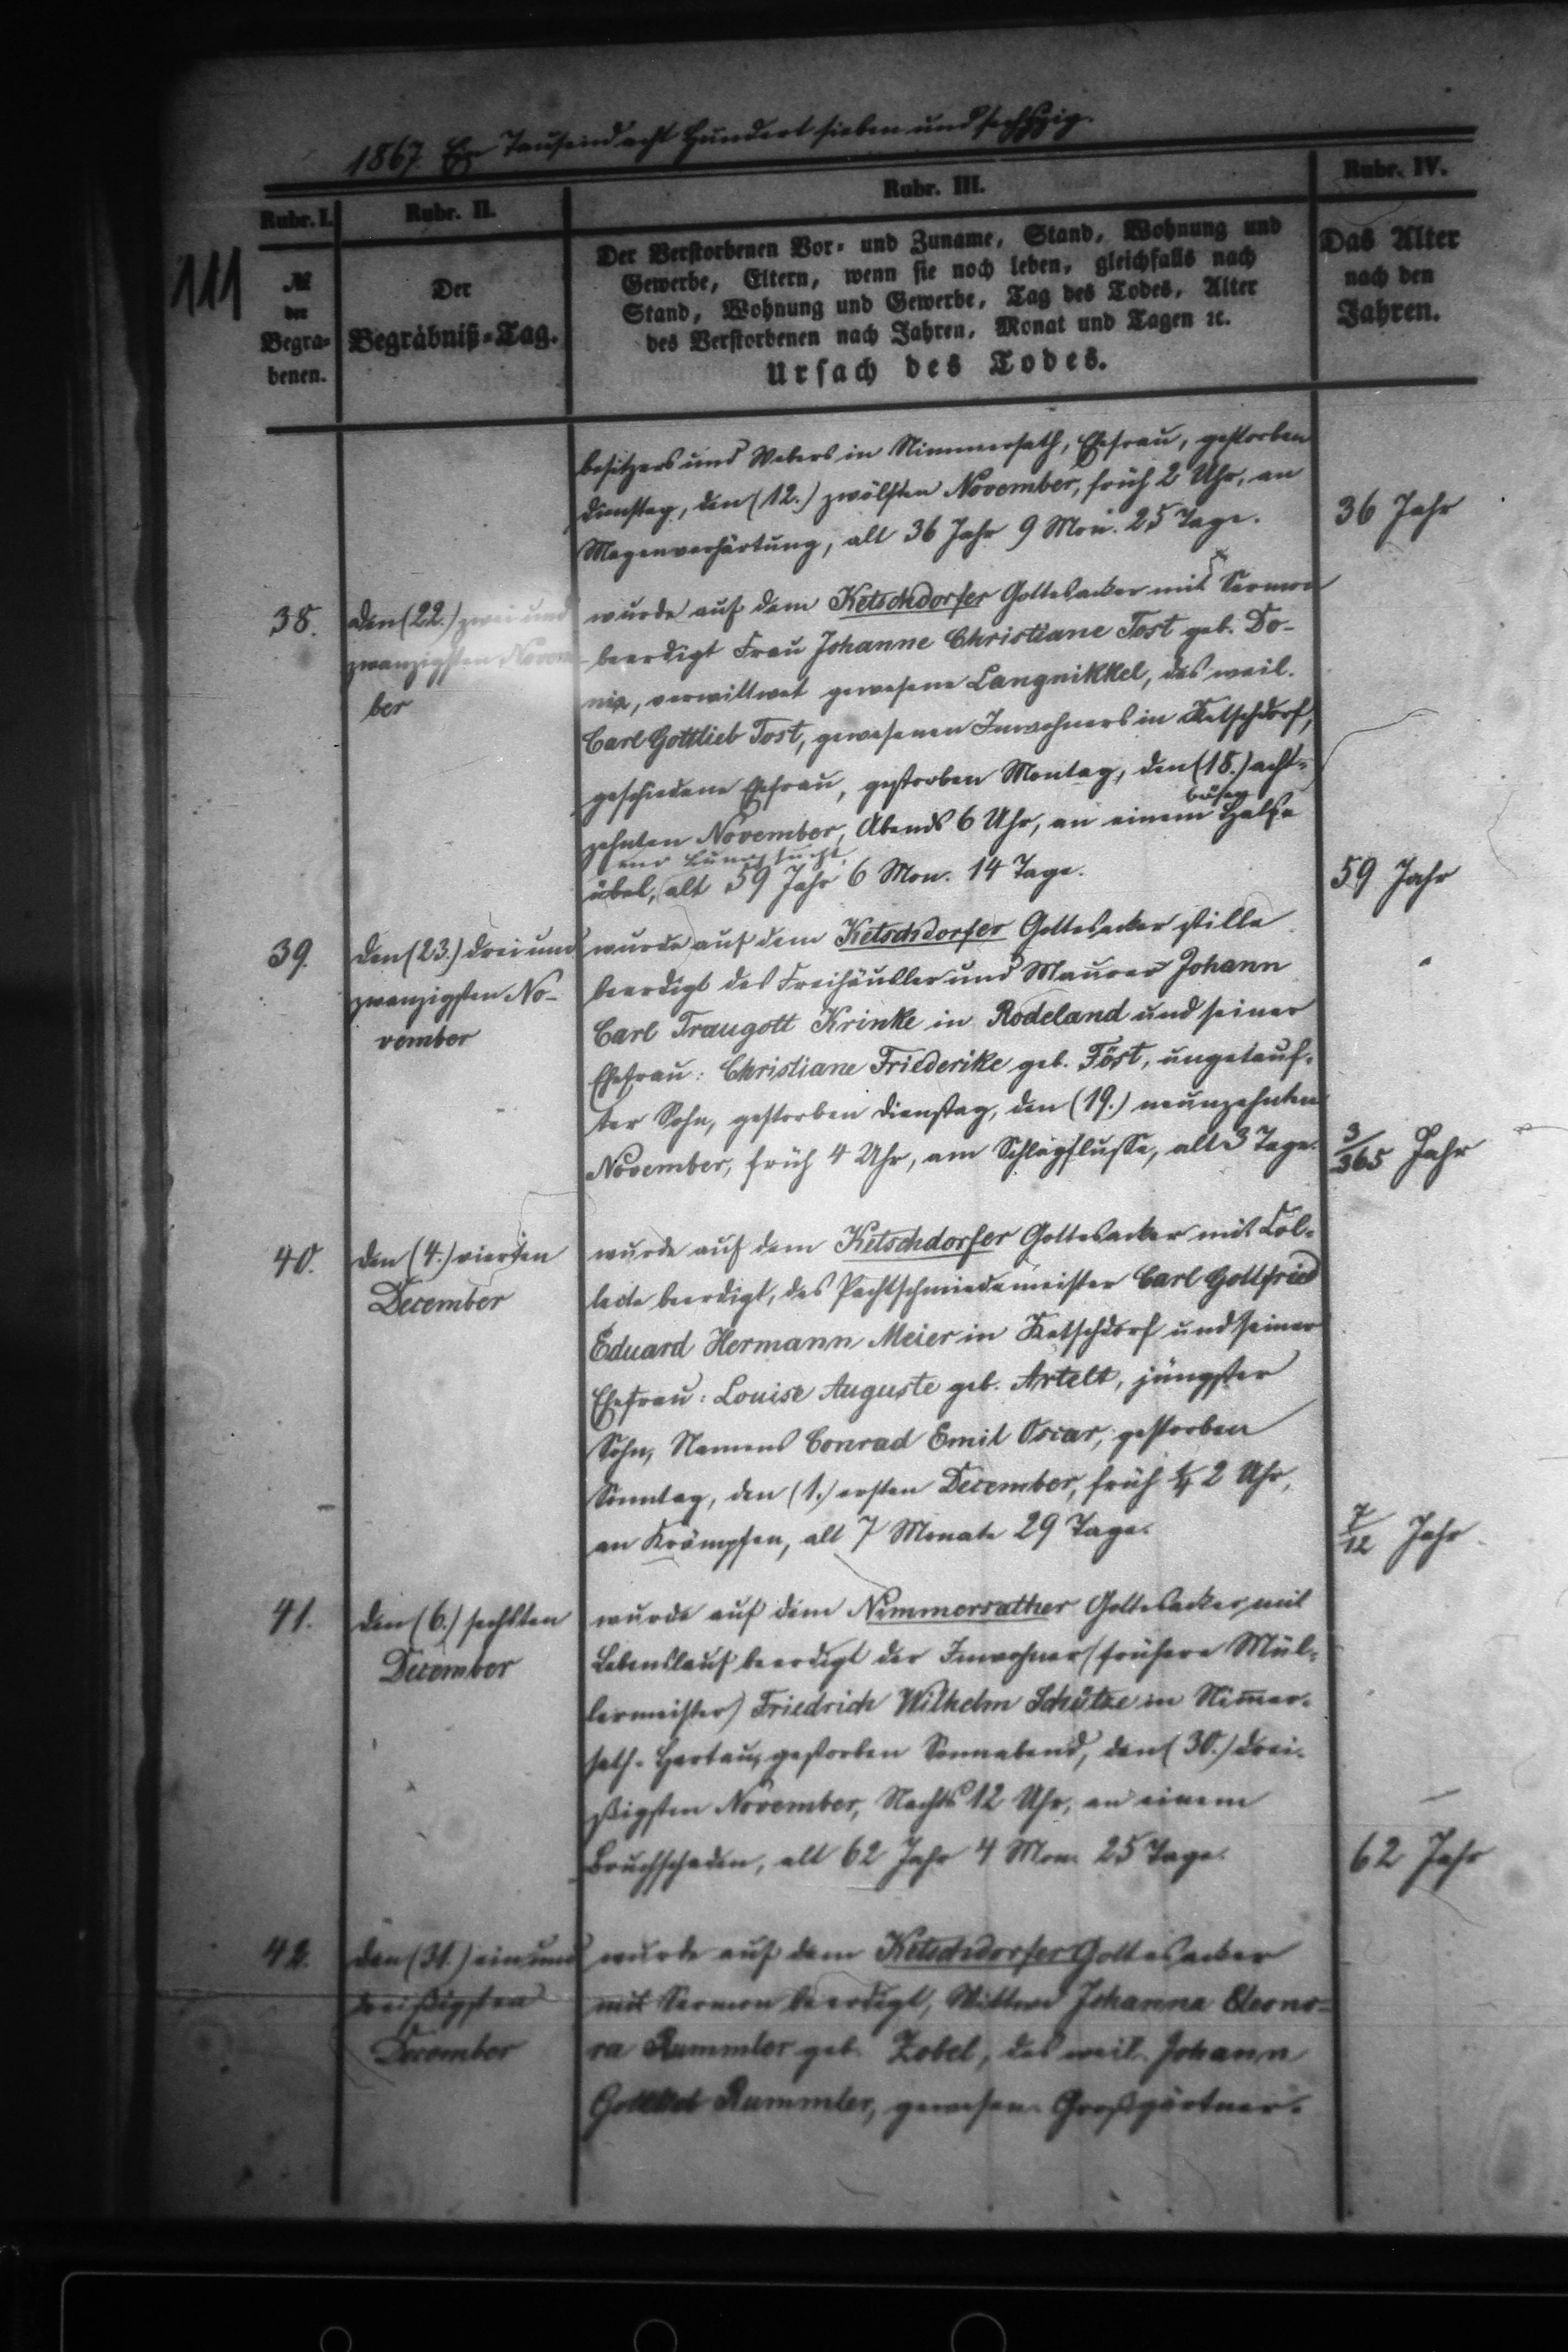 1867. Ein Tausend acht Hundert sieben und sechszig.
Rubr. I.
Rubr. II.
Rubr. III.
Rubr. IV.
111
№
der
Begra-
benen.
Der
Begräbniß-Tag.
Der Verstorbenen Vor- und Zuname, Stand, Wohnung und
Gewerbe, Eltern, wenn sie noch leben, gleichfalls nach
Stand, Wohnung und Gewerbe, Tag des Todes, Alter
des Verstorbenen nach Jahren, Monat und Tagen ꝛc.
Ursach des Todes.
Das Alter
nach den
Jahren.
besitzers und Webers in Nimmersath, Ehefrau, gestorben
Dienstag, den (12.) zwölften November, früh 2 Uhr, an
Magenverhärtung, alt 36 Jahr 9 Mon. 25 Tage.
36 Jahr
38.
den (22.) zwei und
zwanzigsten Novem-
ber
wurde auf dem Ketschdorfer Gottesacker mit Sermon
beerdigt Frau Johanne Christiane Tost geb. Do-
nix, verwittwet gewesene Langnikkel, des weil.
Carl Gottlieb Tost, gewesenen Inwohners in Ketschdorf,
geschiedene Ehefrau, gestorben Montag, den (18.) acht-
zehnten November, Abends 6 Uhr, an einem bösen Halse
übel, und Lungsucht, alt 59 Jahr 6 Mon. 14 Tage.
59 Jahr
39.
den (23.) drei und
zwanzigsten No-
vember
wurde auf dem Ketschdorfer Gottesacker stille
beerdigt des Freihäusler und Maurer Johann
Carl Traugott Krinke in Rodeland und seiner
Ehefrau: Christiane Friederike geb. Töst, ungetauf-
ter Sohn, gestorben Dienstag, den (19.) neunzehnten
November, früh 4 Uhr, am Schlagflusse, alt 3 Tage.
3/365 Jahr
40.
den (4.) vierten
December
wurde auf dem Ketschdorfer Gottesacker mit Col-
lecte beerdigt, des Pachtschmiedemeister Carl Gottfried
Eduard Hermann Meier in Ketschdorf und seiner
Ehefrau: Louise Auguste geb. Artelt, jüngster
Sohn, Namens Conrad Emil Oscar, gestorben
Sonntag, den (1.) ersten December, früh 1/4 2 Uhr,
an Krämpfen, alt 7 Monate 29 Tage.
7/12 Jahr
41.
den (6.) sechsten
December
wurde auf dem Nimmersather Gottesacker mit
Lebenslauf beerdigt der Inwohner (frühere Mül-
lermeister) Friedrich Wilhelm Schütze in Nimmer-
sath-Hartau, gestorben Sonnabend, den (30.) drei-
ßigsten November, Nachts 12 Uhr, an einem
Bruchschaden, alt 62 Jahr 4 Mon. 25 Tage.
62 Jahr
42.
den (31.) ein und
dreißigsten
December
wurde auf dem Ketschdorfer Gottesacker
mit Sermon beerdigt, Wittwe Johanna Eleono-
ra Rummler geb. Zobel, des weil. Johann
Gottlieb Rummler, gewesen. Großgärtner-